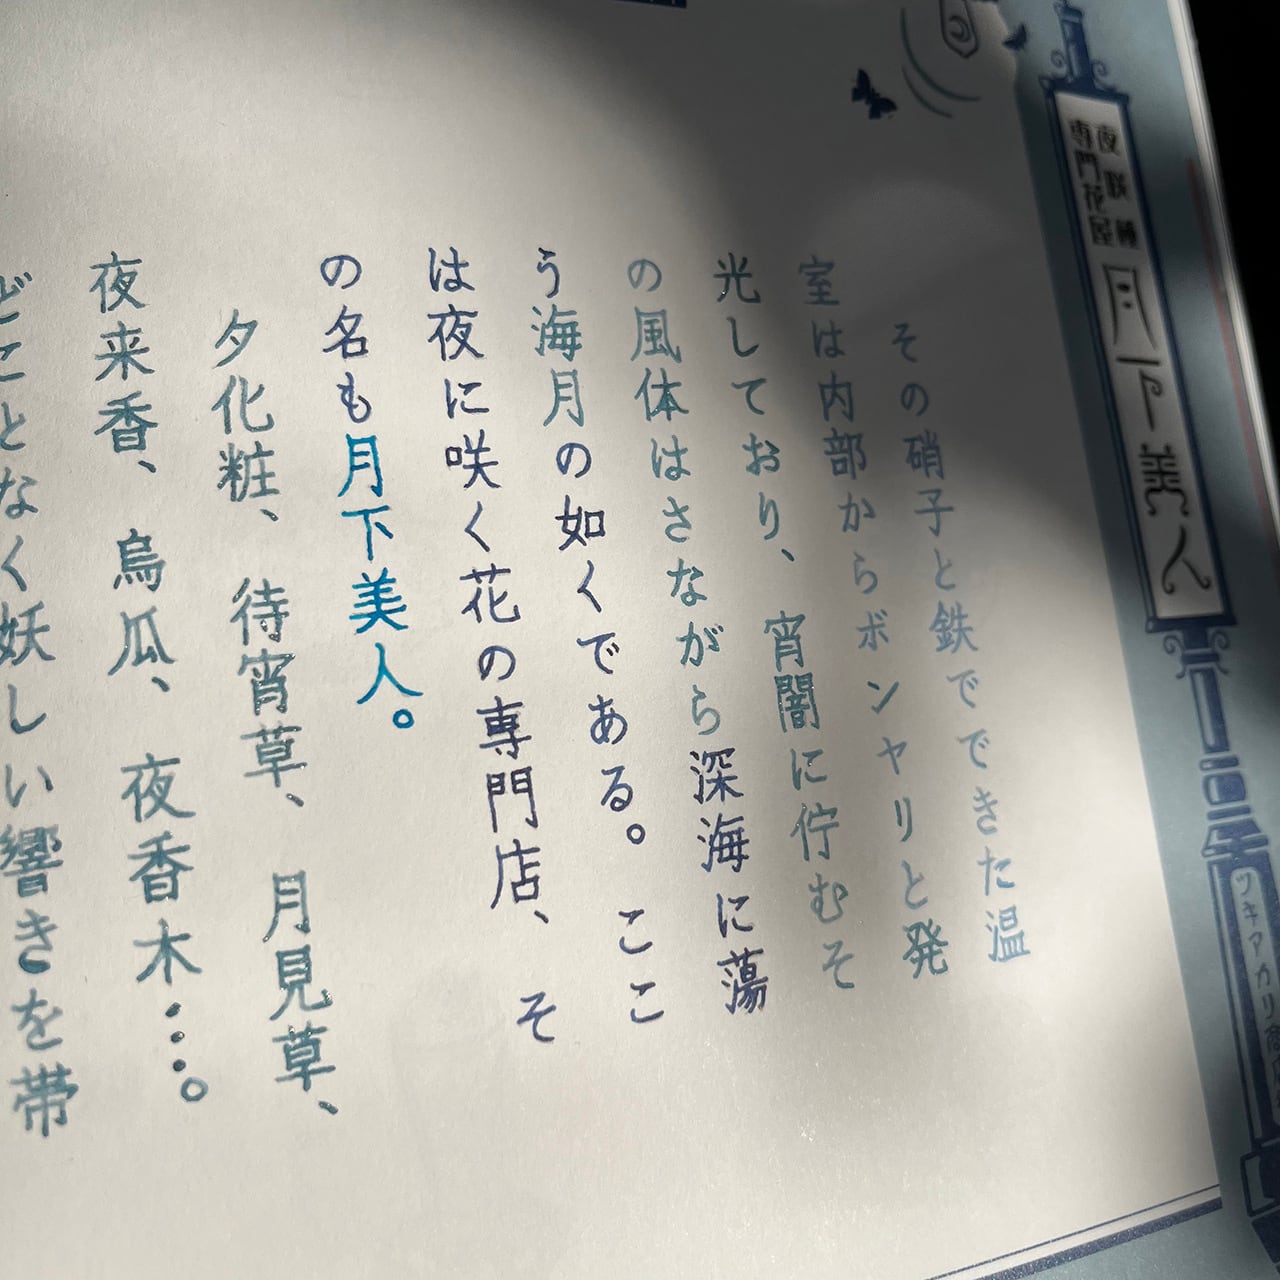 夜咲種
専門花屋
月下美人
ツキアカリ
その硝子と鉄でできた温
室は内部からボンヤリと発
光しており、宵闇に佇むそ
の風体はさながら深海に蕩
う海月の如くである。ここ
は夜に咲く花の専門店、そ
の名も月下美人。
夕化粧、待宵草、月見草、
夜来香、烏瓜、夜香木…。
どことなく妖しい響きを帯